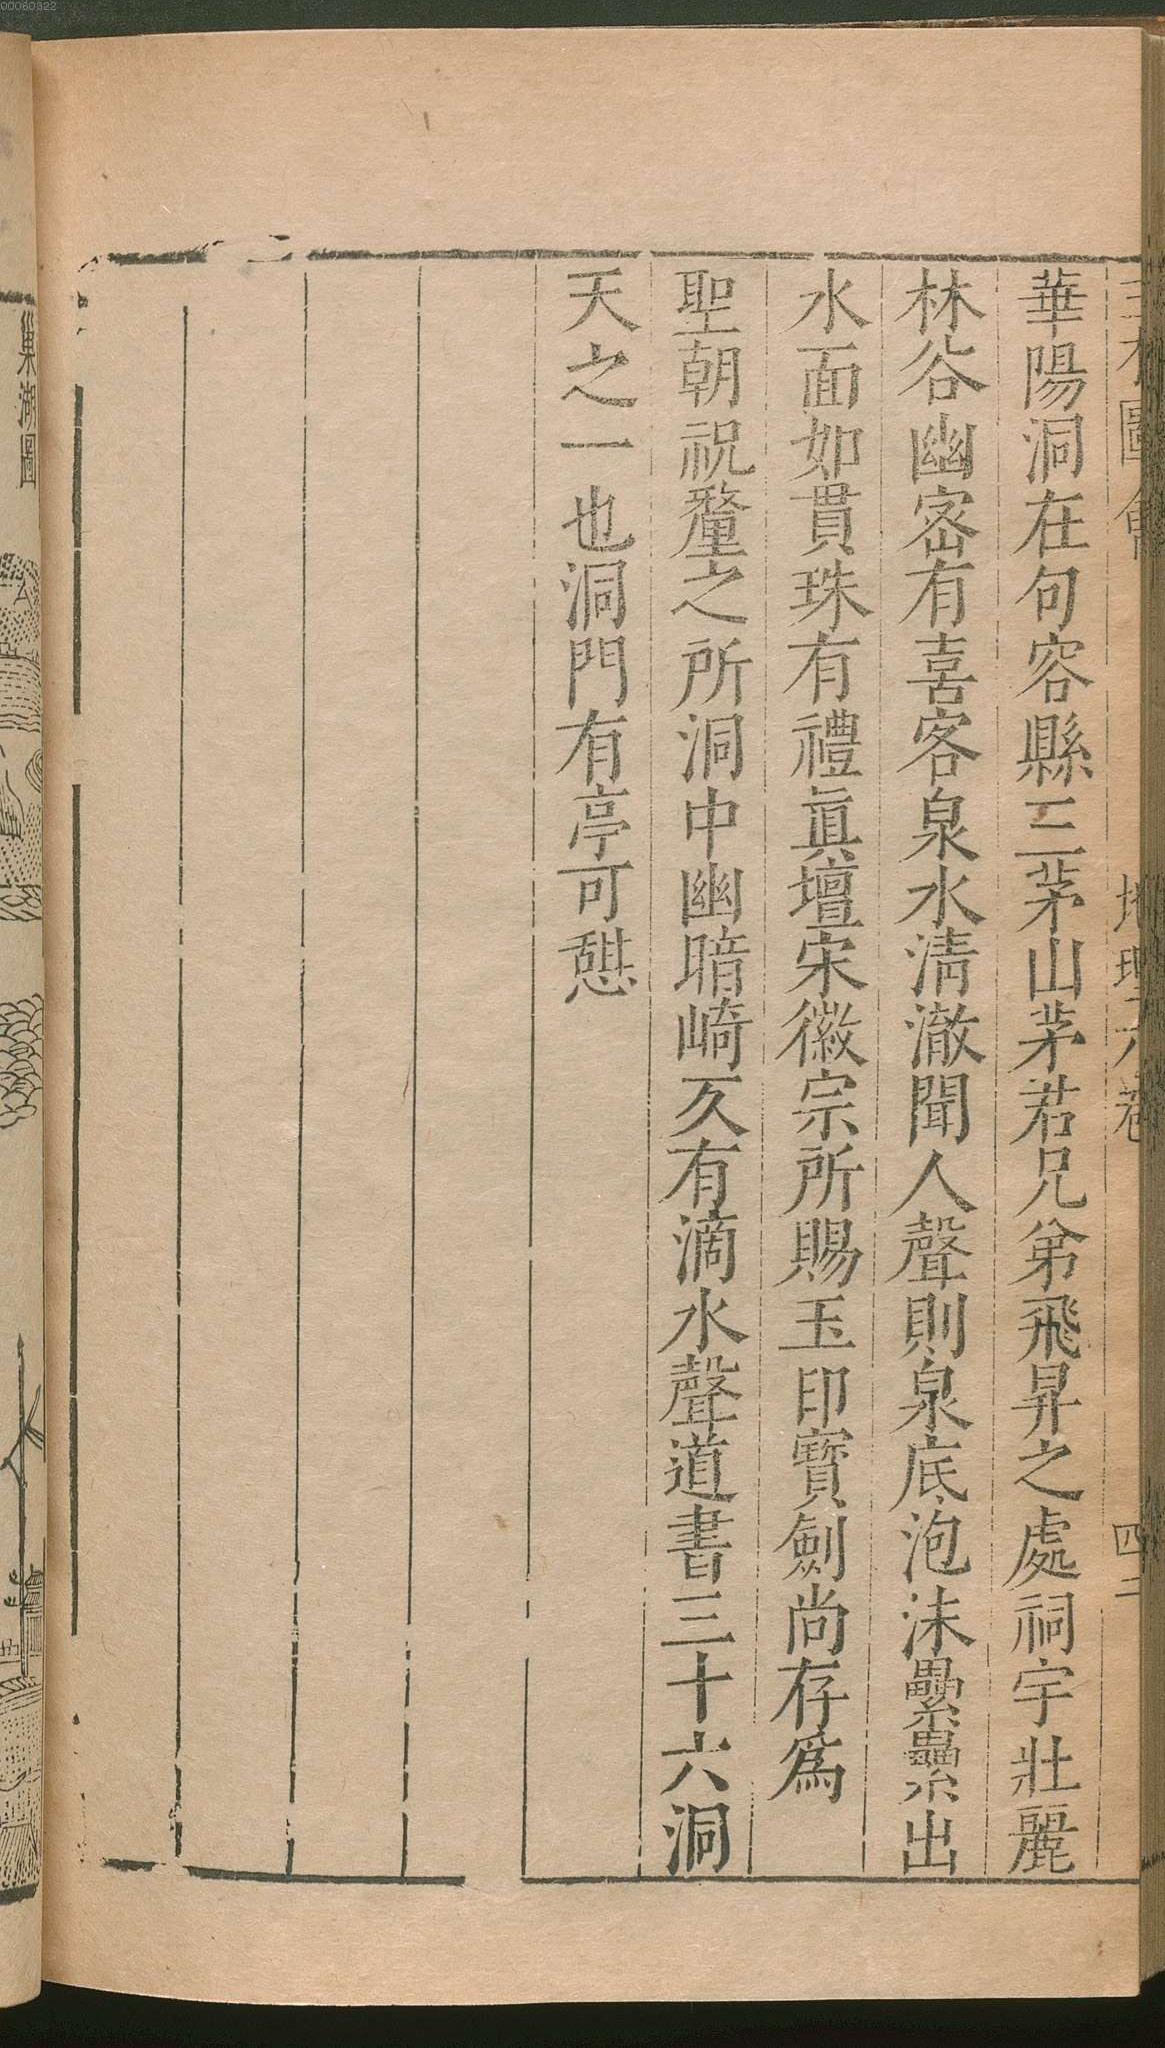 三才圖會 地理六卷 四二
華陽洞在句容縣三茅山茅君兄弟飛昇之處祠宇壯麗
林谷幽宻有喜客泉水淸澈聞人聲則泉底泡沫纍纍出
水面如貫珠有禮眞壇宋徽宗所賜玉印寳劍尚存爲
聖朝祝釐之所洞中幽暗崎㞯有滴水聲道書三十六洞
天之一也洞門有亭可憇
巢湖圖
00060322